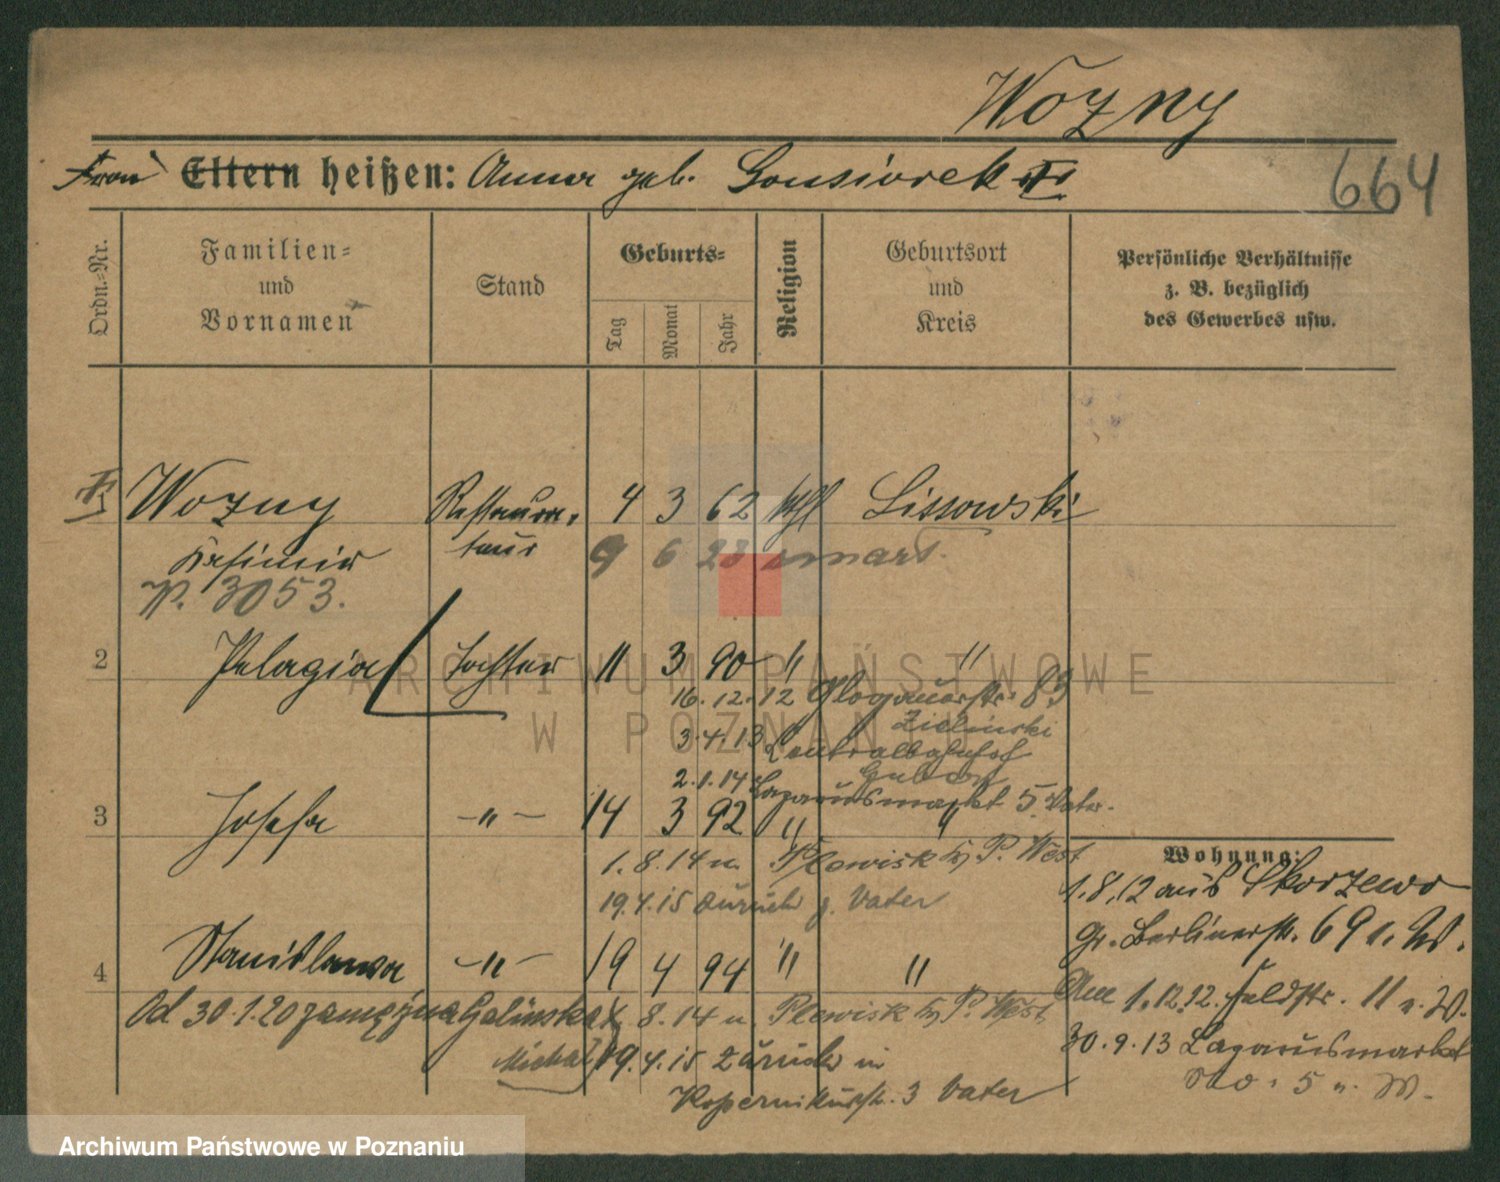 Wozny
664
Frau Eltern heißen: Anna geb. Gonsiorek
Ordn.-Nr.
Familien-
und
Vornamen
Stand
Geburts-
Tag
Monat
Jahr
Religion
Geburtsort
und
Kreis
Persönliche Verhältnisse
z. B. bezüglich
des Gewerbes usw.
Wozny Restaura- 4 3 62 kath Lissowski
Kasimir teur 9 6 28 zmarł.
W. 3053.
2 Pelagia Tochter 11 3 90 " "
16.12.12 Glogauerstr. 83
Zielinski
3.4.13 Zentralbahnhof
2.1.14 Lazarusmarkt 5 Vater.
3 Josefa -"- 14 3 92 " "
1.8.14 n. Plewisk Kr. P. West
19.4.15 zurück z. Vater
4 Stanislawa -"- 19 4 94 " "
Od 30.1.20 zamężna Galińska 8.14 n. Plewisk Kr. P. West
Michał 19.4.15 zurück in
Kopernikusstr. 3 Vater
Wohnung:
1.8.12 aus Skorzewo
Gr. Berlinerstr. 69 b. W.
Am 1.12.12. Feldstr. 11 b. W.
30.9.13 Lazarusmarkt
No. 5 b. W.
ARCHIWUM PAŃSTWOWE
W POZNANIU
Archiwum Państwowe w Poznaniu